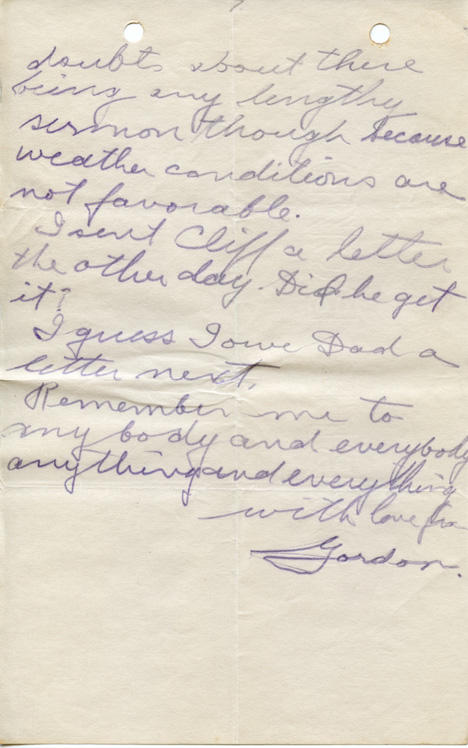 doubts about there
being any lengthy
sermon though because
weather conditions are
not favorable.
I sent Cliff a letter
the other day. Did he get
it?
I guess I owe Dad a
letter next.
Remember me to
anybody and everybody
anything and everything
with love from
Gordon.